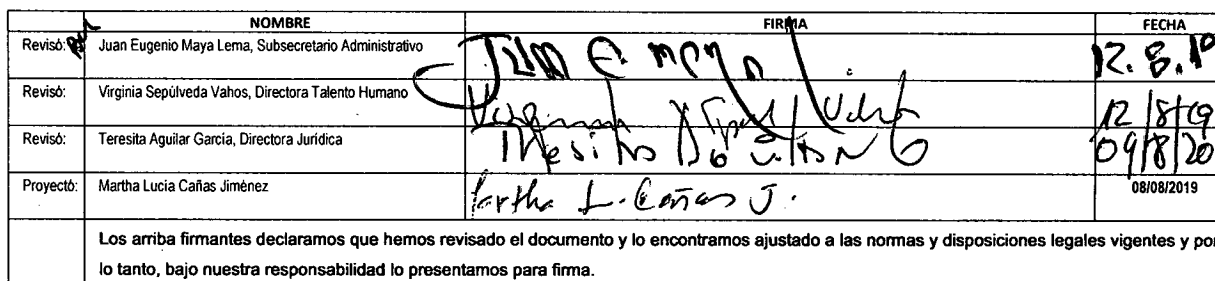 NOMBRE FIRMA FECHA
Revisó: Juan Eugenio Maya Lema, Subsecretario Administrativo Juan E Maya 12.8.19
Revisó: Virginia Sepúlveda Vahos, Directora Talento Humano Virginia Sepulveda Vahos 12/8/19
Revisó: Teresita Aguilar Garcia, Directora Jurídica Teresita Aguilar G 09/8/20
Proyectó: Martha Lucía Cañas Jiménez Martha L. Cañas J. 08/08/2019
Los arriba firmantes declaramos que hemos revisado el documento y lo encontramos ajustado a las normas y disposiciones legales vigentes y por
lo tanto, bajo nuestra responsabilidad lo presentamos para firma.